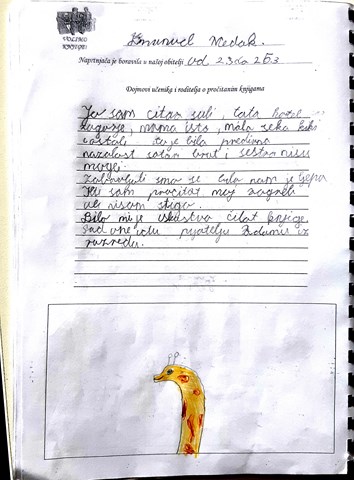 VOLIMO
KNJIGE!
Emanuel Medak.
Naprtnjača je boravila u našoj obitelji od 23 do 26 3
Dojmovi učenika i roditelja o pročitanim knjigama
Ja sam čitao subi, tata
mama isto, mala seka
ostali to je bilo predivno
nažalost sotan brat i sestra nisu
mogli.
Zabavljali smo se bila nam je ljepa
Htio sam pročitat moj zagreb
ali nisam stigo.
Bilo mi je iskustvo čitat knjige.
Sad one idu prijatelju iz
razreda.